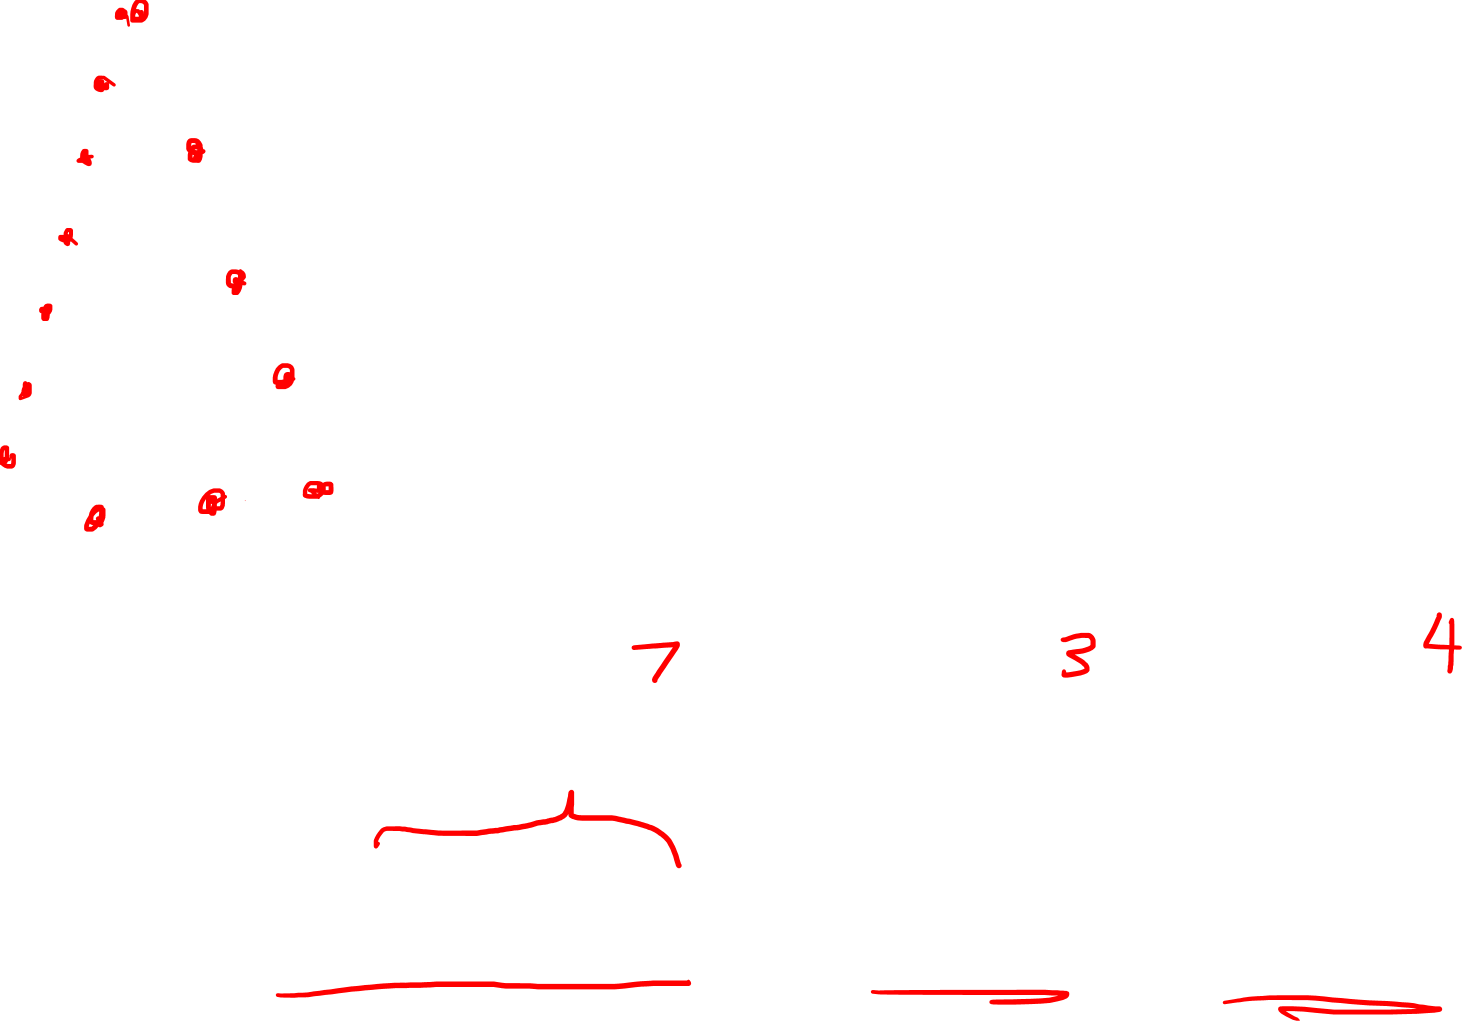 7 3 4